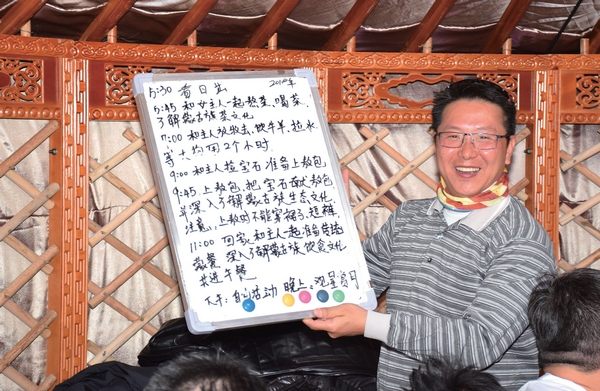 5:30 看日出
5:45 和女主人一起熬茶、喝茶,
了解蒙古族茶文化
7:00 和主人放牧去、饮牛羊、拉水
等 大约用2个小时
9:00 和主人捡宝石 准备上敖包
9:45. 上敖包, 把宝石 敖包
深入了解蒙古族生态文化,
注意: 上敖包时不能穿裙子、短裤
11:00 回家, 和主人一起准备
蒙餐 深入了解蒙古族饮食文化
共进午餐
下午: 自由活动 晚上: 观星赏月